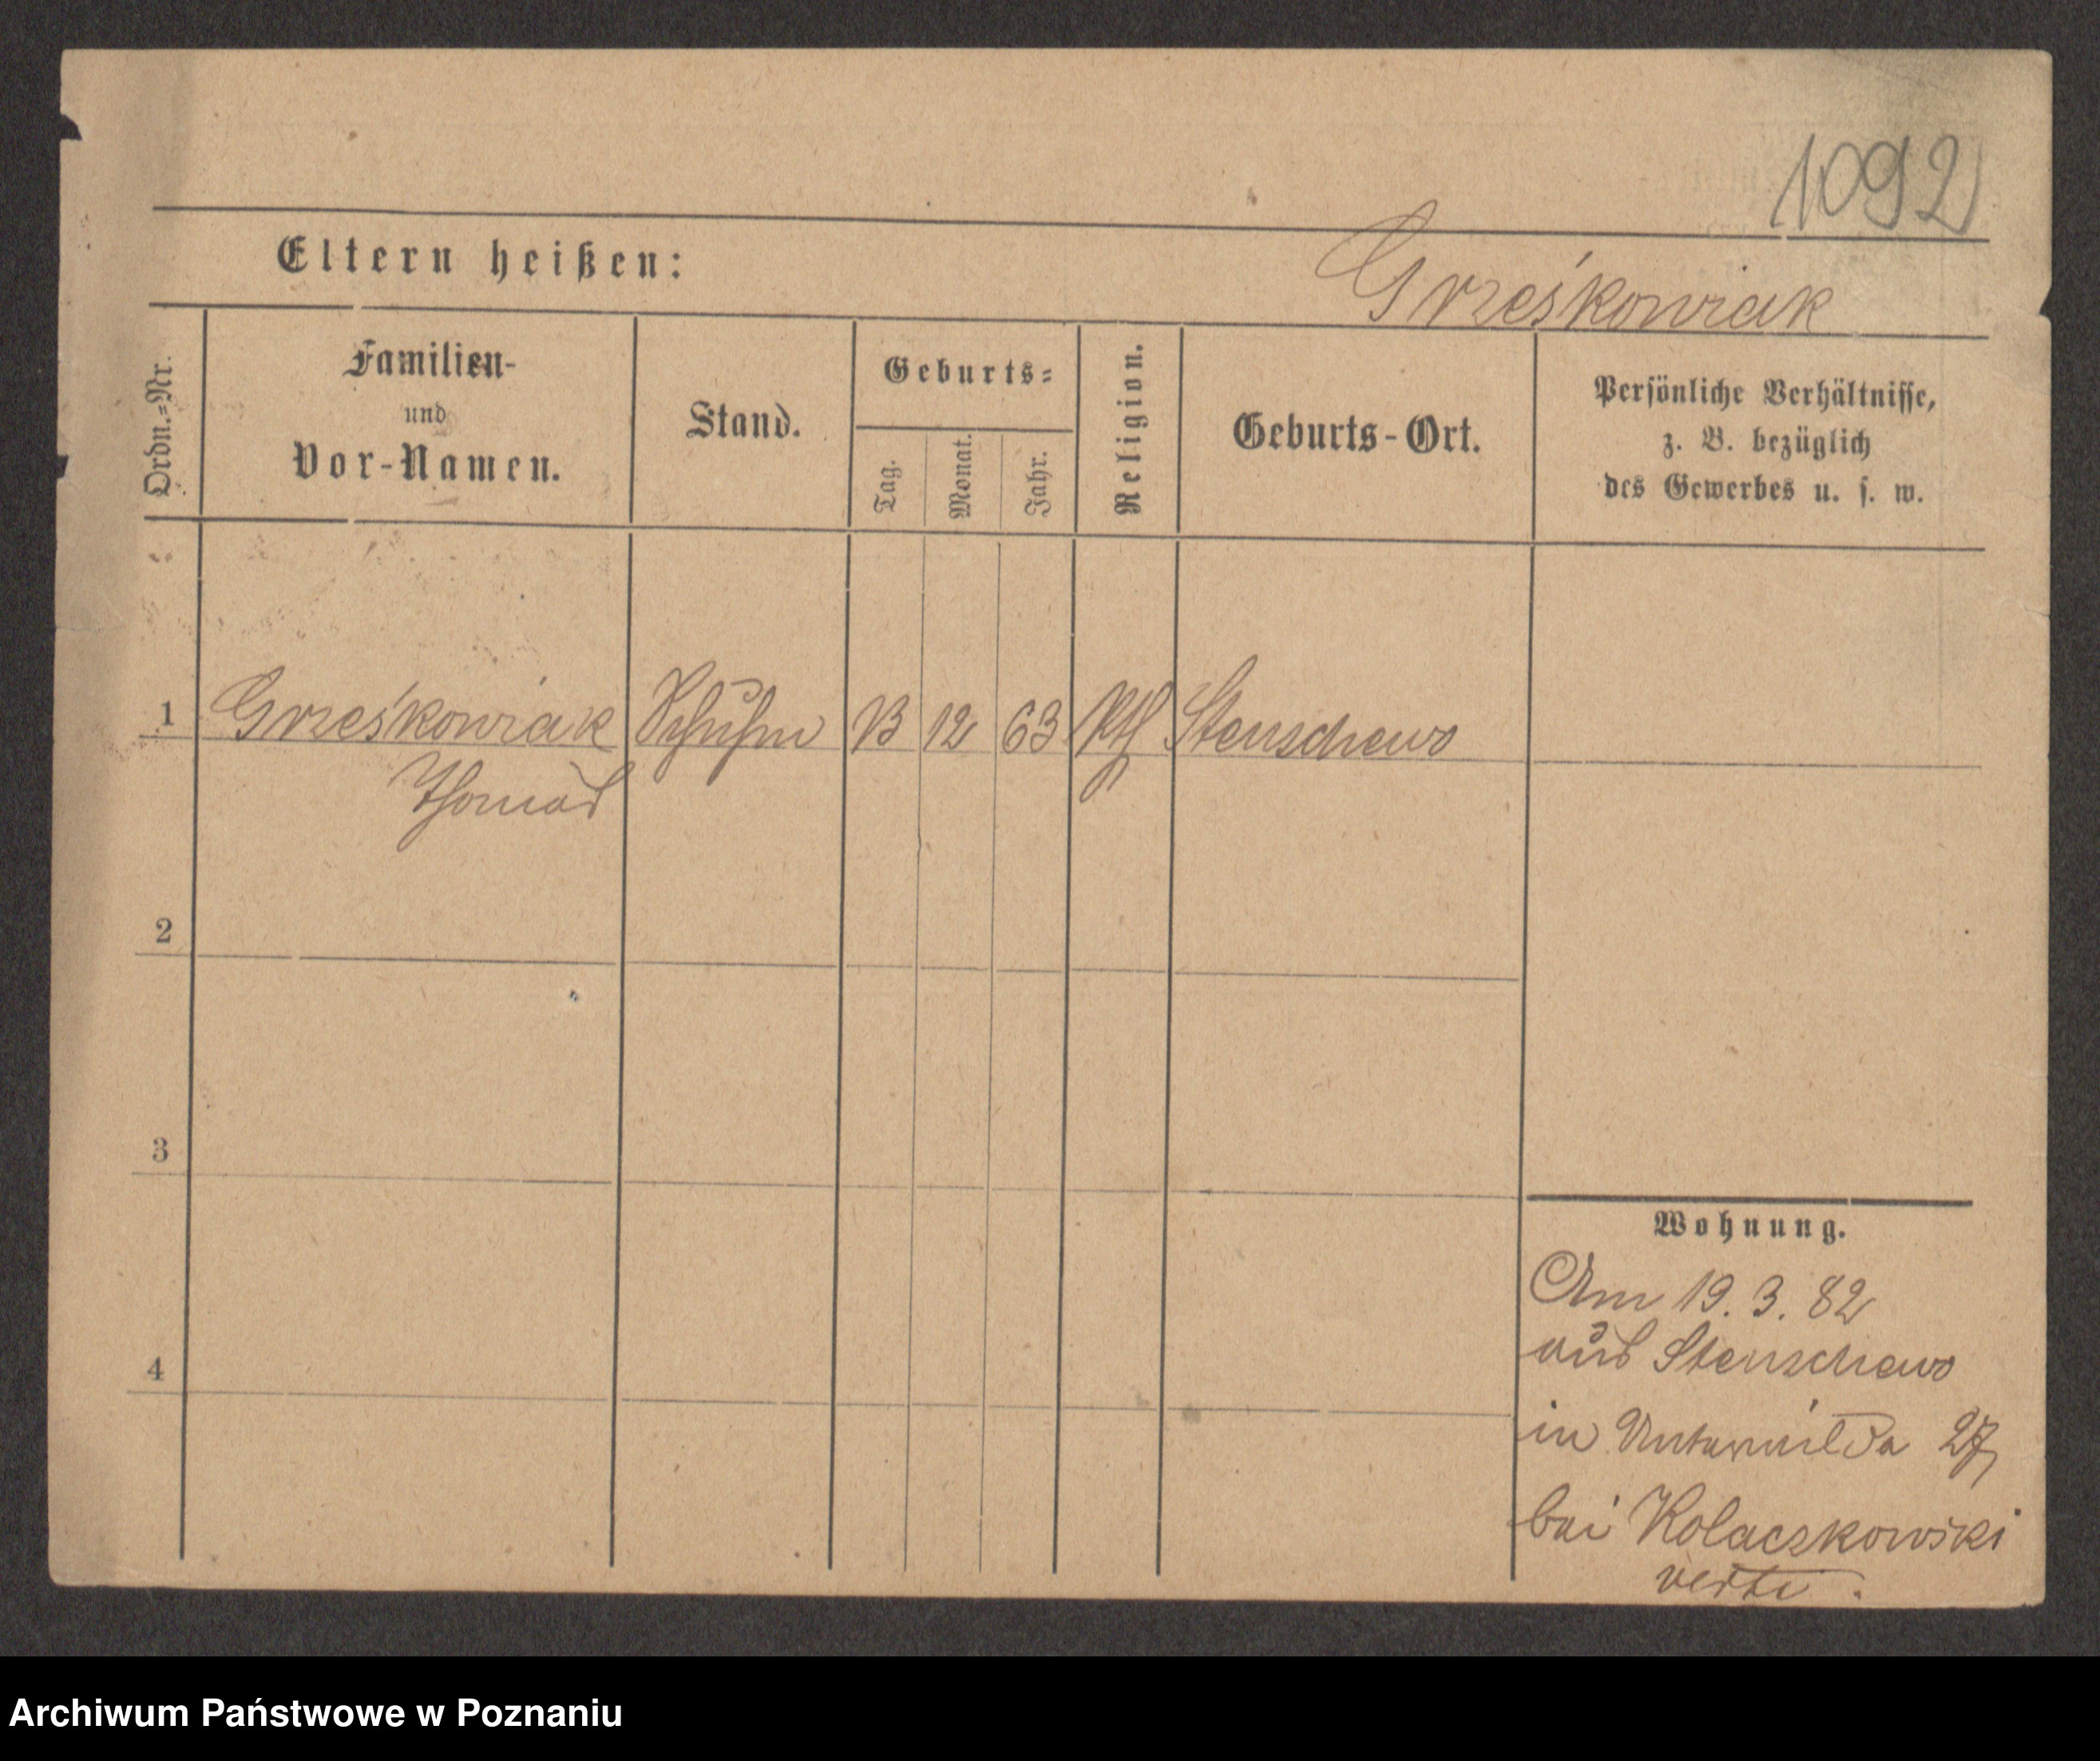 1092
Eltern heißen:
Grześkowiak
Ordn.-Nr.
Familien-
und
Vor-Namen.
Stand.
Geburts-
Tag.
Monat.
Jahr.
Religion.
Geburts-Ort.
Persönliche Verhältnisse,
z. B. bezüglich
des Gewerbes u. s. w.
1 Grześkowiak 12 63 Kth Stenschewo
Thomas
2
3
4
Wohnung.
Am 19. 3. 82
aus Stenschewo
in Unterwilda 27
bei Kolaczkowski
verte.
Archiwum Państwowe w Poznaniu